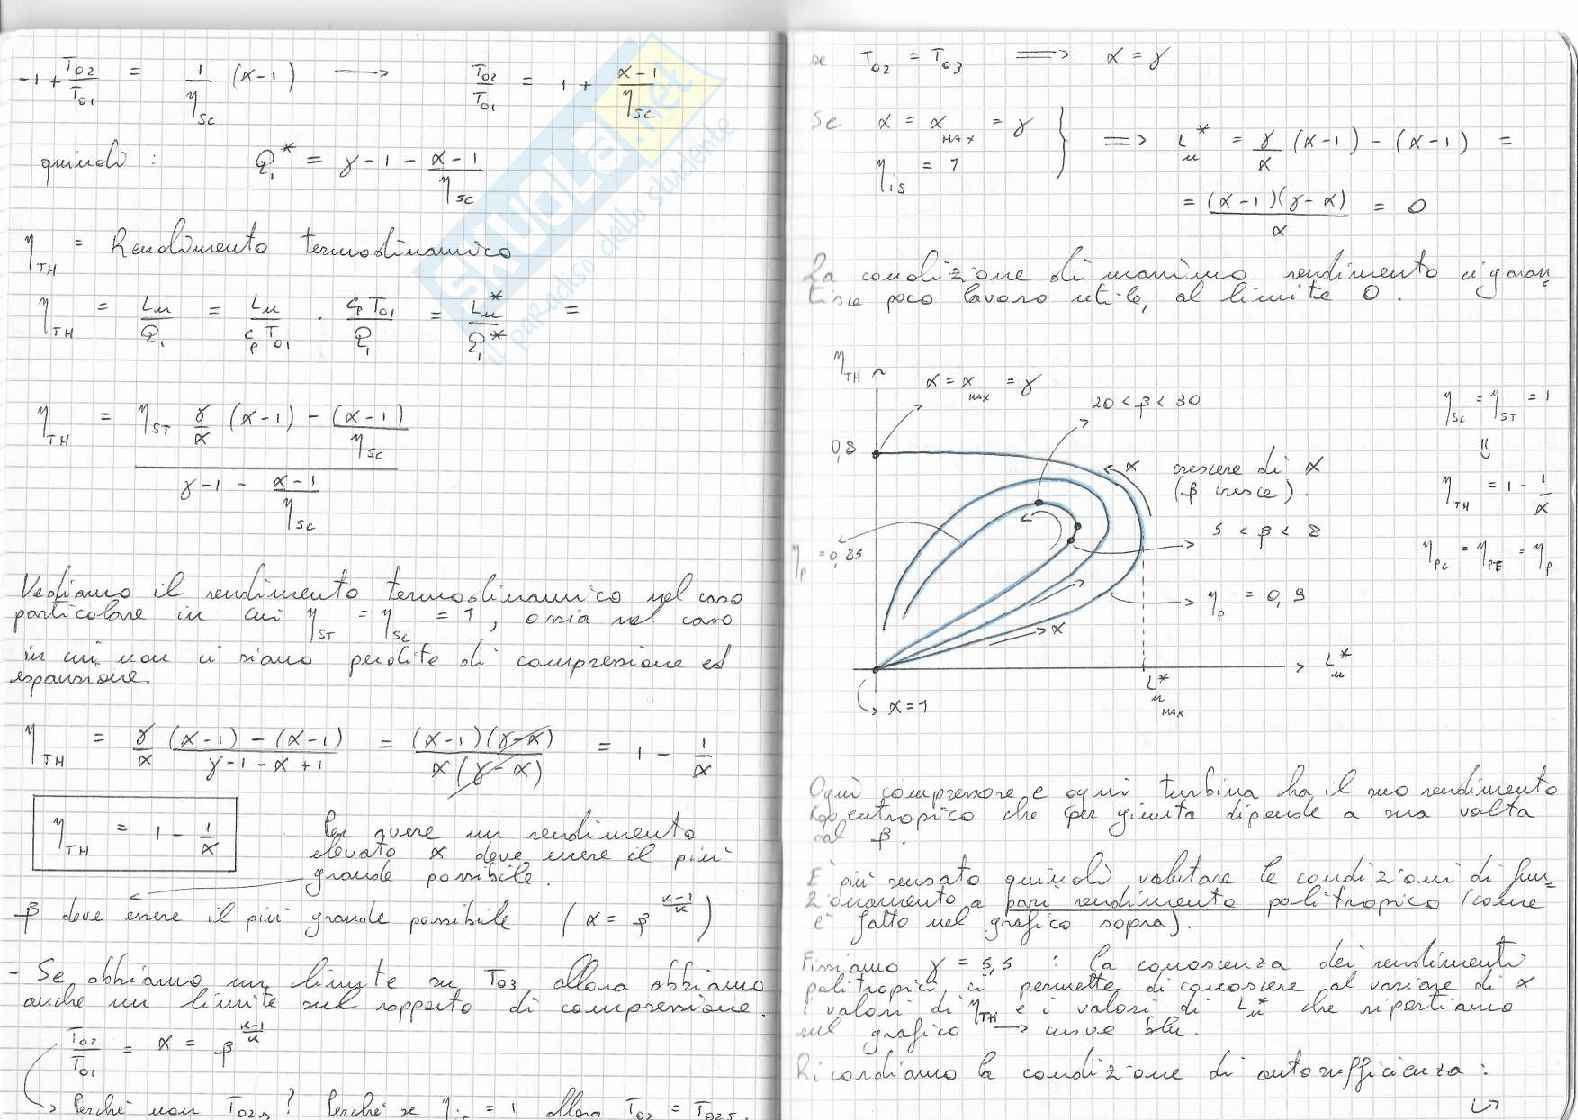 -1 + T02/T01 = 1/ηsc (α-1) → T02/T01 = 1 + (α-1)/ηsc
quindi : Q1* = γ-1 - (α-1)/ηsc
ηTH = Rendimento termodinamico
ηTH = Lu/Q1 = Lu/(cp T01) · (cp T01)/Q1 = Lu*/Q1* =
ηTH = (ηST γ/α (α-1) - (α-1)/ηsc) / (γ-1 - (α-1)/ηsc)
Vediamo il rendimento termodinamico nel caso
particolare in cui ηST = ηSC = 1, ossia nel caso
in cui non ci siano perdite di compressione ed
espansione.
ηTH = (γ/α (α-1) - (α-1)) / (γ-1-α+1) = (α-1)(γ-α) / α(γ-α) = 1 - 1/α
ηTH = 1 - 1/α
Per avere un rendimento
elevato α deve essere il più
grande possibile.
β deve essere il più grande possibile (α = β^((k-1)/k))
- Se abbiamo un limite su T03 allora abbiamo
anche un limite sul rapporto di compressione.
T02/T01 = α = β^((k-1)/k)
Perché non T02s? Perché se ηis = 1 allora T02 = T02s.
se T02 = T03 ⟹ α = γ
Se α = αMAX = γ
ηis = 1
} ⟹ Lu* = γ/α (α-1) - (α-1) =
= (α-1)(γ-α)/α = 0
La condizione di massimo rendimento ci garan
tisce poco lavoro utile, al limite 0.
ηTH
α = αMAX = γ
20 < β < 30
0,8
α crescere di α
(β cresce).
5 < β < 8
ηp = 0,85
ηp = 0,9
α
Lu*
Lu*MAX
α=1
ηSC = ηST = 1
⇓
ηTH = 1 - 1/α
ηPC = ηPE = ηP
Ogni compressore e ogni turbina ha il suo rendimento
isoentropico che per giunta dipende a sua volta
dal β.
È più sensato quindi valutare le condizioni di fun
zionamento a pari rendimento politropico (come
è fatto nel grafico sopra).
Fissiamo γ = 5,5 : la conoscenza dei rendimenti
politropici ci permette di conoscere al variare di α
i valori di ηTH e i valori di Lu* che riportiamo
sul grafico → curve blu.
Ricordiamo la condizione di autosufficienza :
SKUOLA.net
il paradiso dello studente